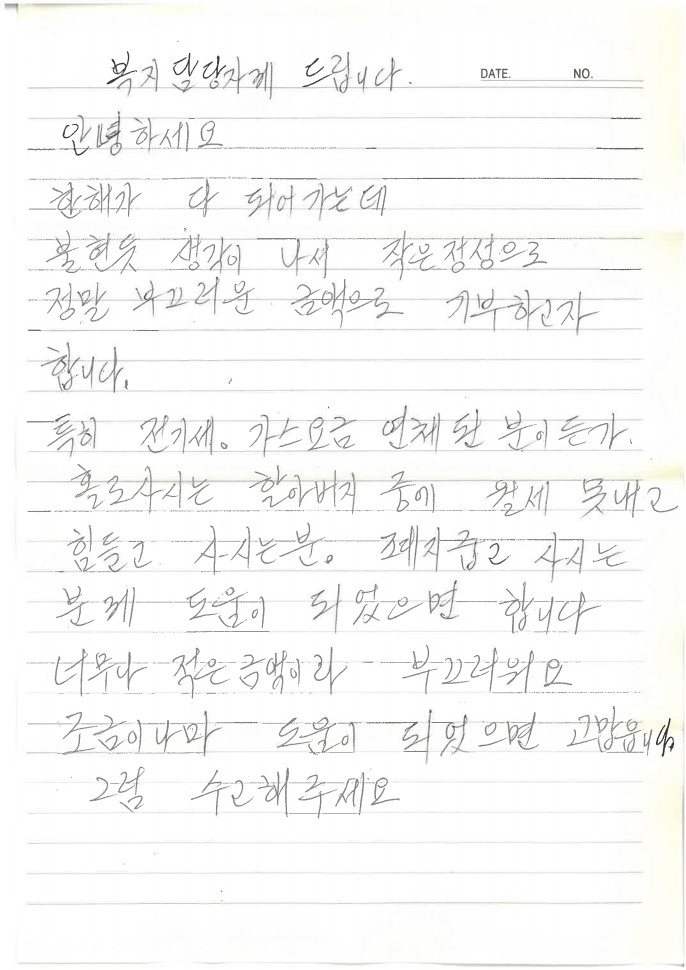 복지담당자께 드립니다.
DATE. NO.
안녕하세요
한해가 다 되어가는데
불현듯 생각이 나서 작은정성으로
정말 부끄러운 금액으로 기부하고자
합니다.
특히 전기세. 가스요금 연체된 분이든가.
홀로사시는 할아버지 중에 월세 못내고
힘들고 사시는분. 폐지줍고 사시는
분께 도움이 되었으면 합니다
너무나 적은금액이라 부끄러워요
조금이나마 도움이 되었으면 고맙읍니다
그럼 수고해주세요